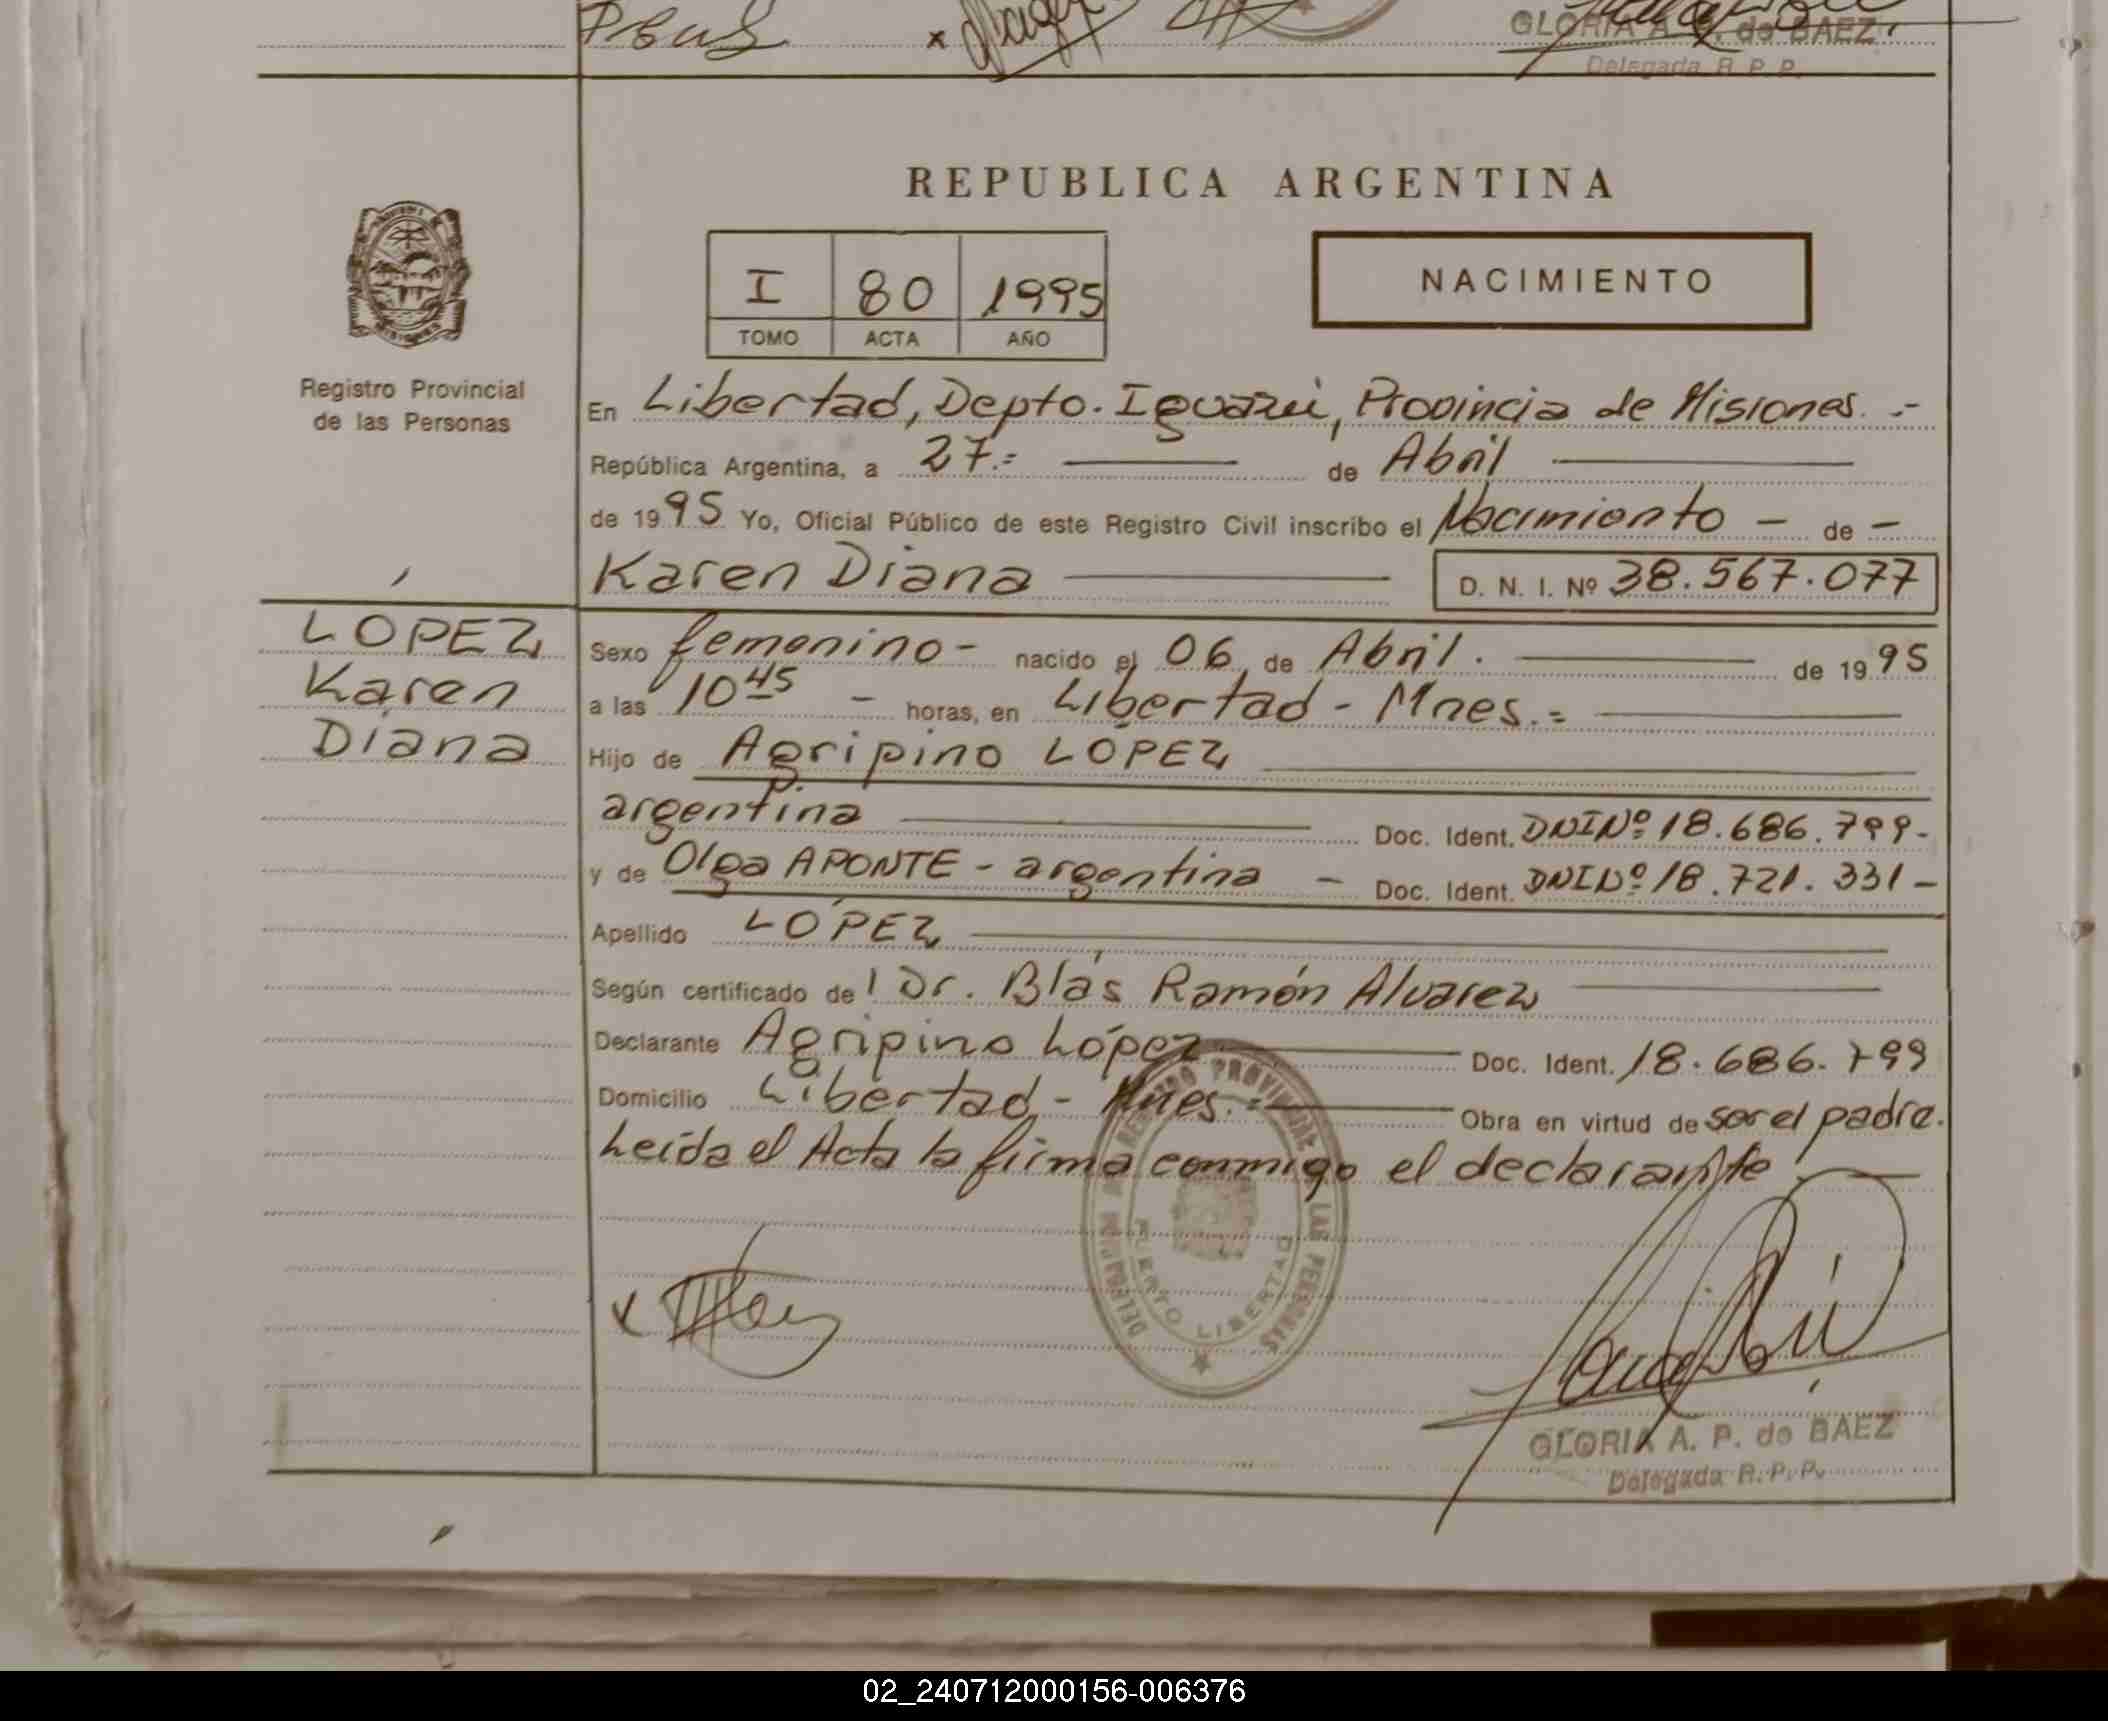 GLORIA A. P. de BAEZ
Delegada R. P. P.
REPUBLICA ARGENTINA
I 80 1995
TOMO ACTA AÑO
NACIMIENTO
Registro Provincial
de las Personas
En Libertad, Depto. Iguazú, Provincia de Misiones. .-
República Argentina, a 27.= de Abril
de 1995 Yo, Oficial Público de este Registro Civil inscribo el Nacimiento - de -
Karen Diana D. N. I. Nº 38.567.077
LOPEZ
Karen
Diana
Sexo femenino - nacido el 06 de Abril. de 1995
a las 10 45 - horas, en Libertad - Mnes. =
Hijo de Agripino LOPEZ
argentina Doc. Ident. DNINº 18.686.799-
y de Olga APONTE - argentina - Doc. Ident. DNINº 18.721.331-
Apellido LÓPEZ
Según certificado del Dr. Blás Ramón Alvarez
Declarante Agripino López Doc. Ident. 18.686.799
Domicilio Libertad - Mnes. = Obra en virtud de ser el padre.
Leída el Acta la firma conmigo el declarante
DELEGACION DEL REGISTRO PROVINCIAL DE LAS PERSONAS
PUERTO LIBERTAD
GLORIA A. P. de BAEZ
Delegada R. P. P.
02_240712000156-006376